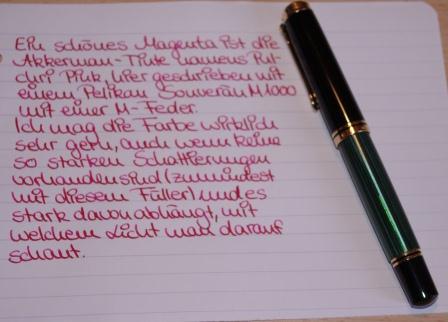 Ein schönes Magenta ist die
Akkerman-Tinte namens Rut-
chri Pink, hier geschrieben mit
einem Pelikan Souverän M1000
mit einer M-Feder.
Ich mag die Farbe wirklich
sehr gern, auch wenn keine
so starken Schattierungen
vorhanden sind (zumindest
mit diesem Füller) und es
stark davon abhängt, mit
welchem Licht man darauf
schaut.